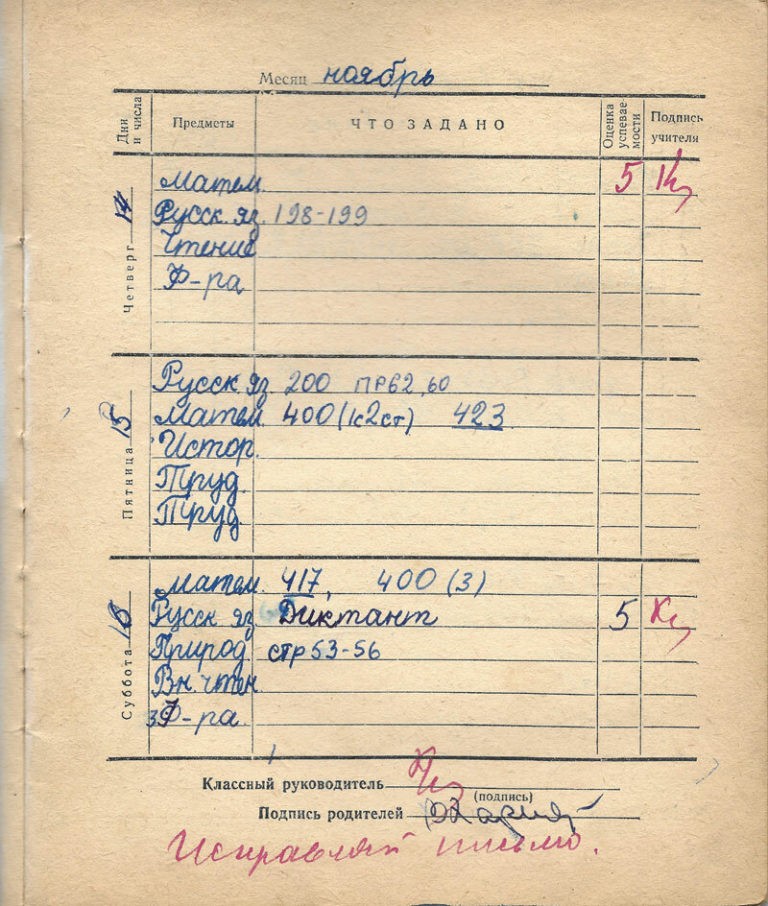 Месяц ноябрь
Дни и числа Предметы ЧТО ЗАДАНО Оценка успеваемости Подпись учителя
Четверг 14
Матем. 5
Русск. яз. 198-199
Чтение
Ф-ра
Пятница 15
Русск. яз. 200 ПР62,60
Матем. 400 (1с2ст) 423
Истор.
Труд.
Труд.
Суббота 16
Матем. 417, 400 (3)
Русск яз Диктант 5
Природ. стр 53-56
Вн. чтен
Ф-ра.
Классный руководитель
(подпись)
Подпись родителей
Исправляй письмо.